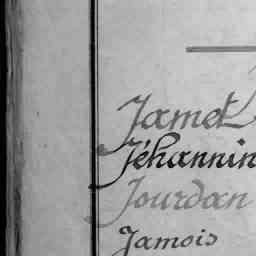 Jamet
Jéhannin
Jourdan
Jamois